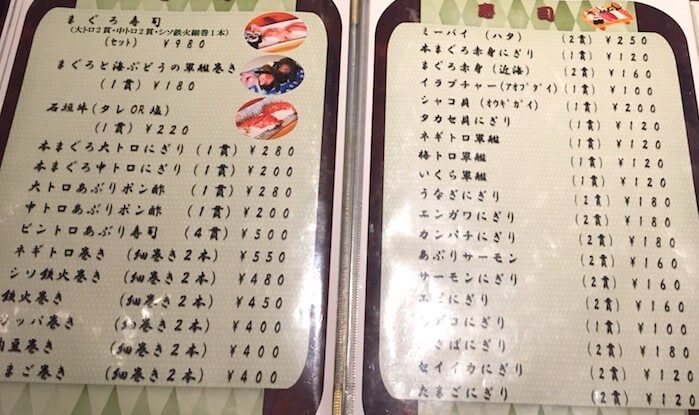 まぐろ寿司
(大トロ2貫・中トロ2貫・シソ鉄火細巻1本)
(セット) ¥980
まぐろと海ぶどうの軍艦巻き
(1貫) ¥180
石垣牛(タレOR塩)
(1貫) ¥220
本まぐろ大トロにぎり (1貫) ¥280
本まぐろ中トロにぎり (1貫) ¥200
大トロあぶりポン酢 (1貫) ¥280
中トロあぶりポン酢 (1貫) ¥200
ビントロあぶり寿司 (4貫) ¥500
ネギトロ巻き (細巻き2本) ¥550
シソ鉄火巻き (細巻き2本) ¥480
鉄火巻き (細巻き2本) ¥450
ッパ巻き (細巻き2本) ¥400
豆巻き (細巻き2本) ¥400
まご巻き (細巻き2本) ¥400
寿司
ミーバイ (ハタ) (2貫) ¥250
本まぐろ赤身にぎり (1貫) ¥200
まぐろ赤身 (近海) (2貫) ¥160
イラブチャー(アオブダイ) (1貫) ¥100
シャコ貝 (オウギガイ) (1貫) ¥200
タカセ貝にぎり (1貫) ¥120
ネギトロ軍艦 (1貫) ¥120
梅トロ軍艦 (1貫) ¥120
いくら軍艦 (1貫) ¥120
うなぎにぎり (2貫) ¥180
エンガワにぎり (2貫) ¥180
カンパチにぎり (2貫) ¥180
あぶりサーモン (2貫) ¥180
サーモンにぎり (2貫) ¥160
エビにぎり (2貫) ¥160
コにぎり (1貫) ¥100
さばにぎり (2貫) ¥120
セイイカにぎり (2貫) ¥180
たまごにぎり (2貫) ¥120